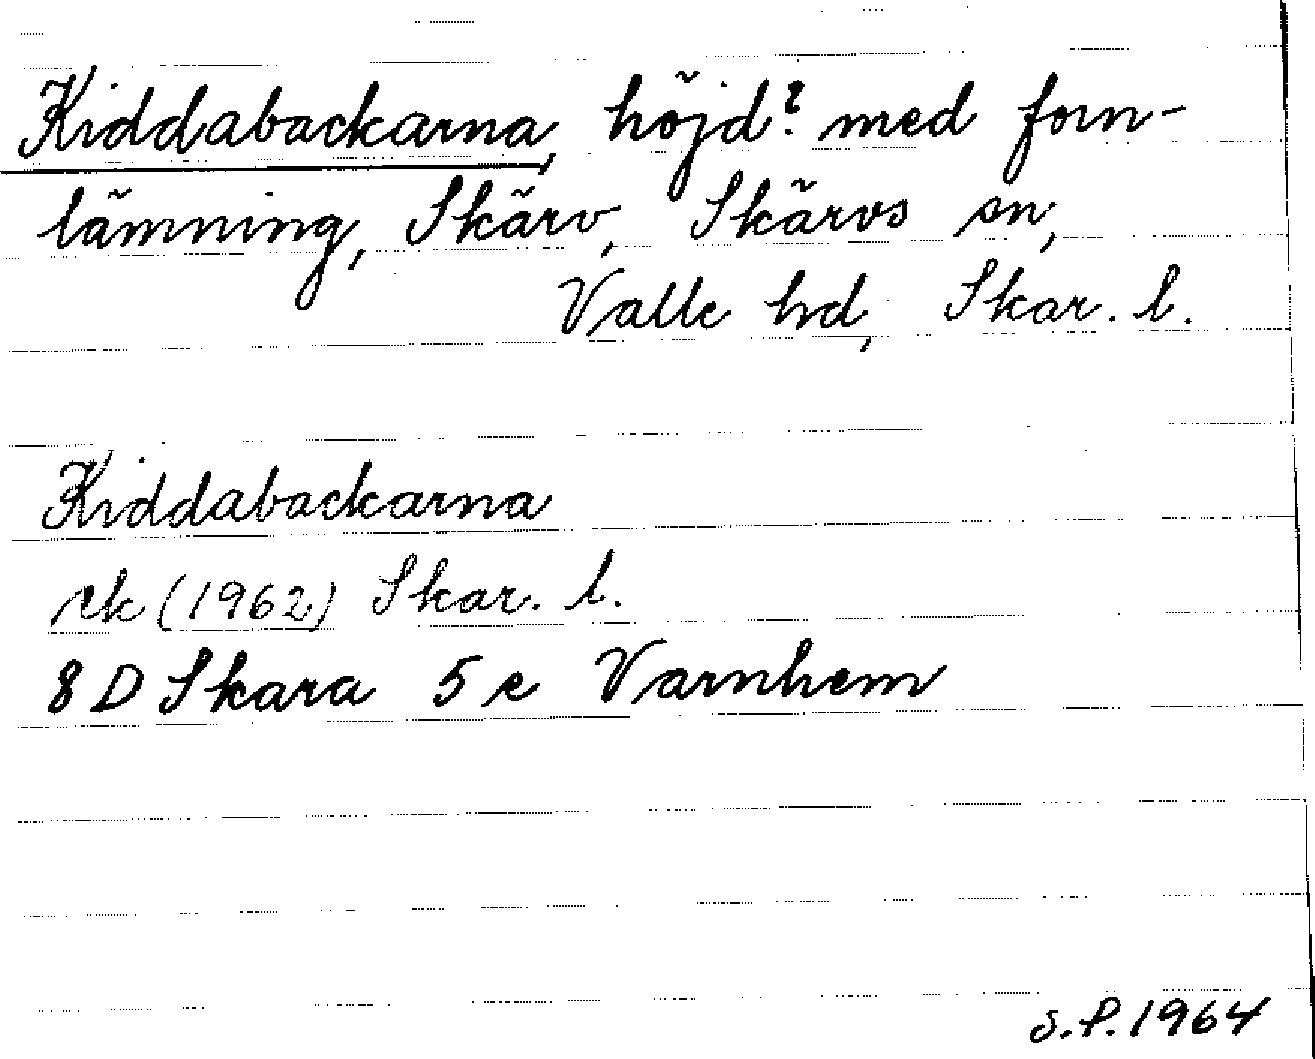 Kiddabackarna, höjd? med forn-
lämning, Skärv, Skärvs sn,
Valle hd, Skar. l.
Kiddabackarna
rk (1962) Skar. l.
8 D Skara 5 e Varnhem
S.P. 1964